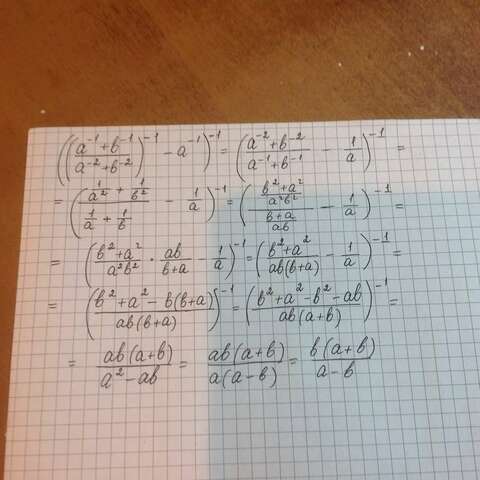 (((a⁻¹+b⁻¹)/(a⁻²+b⁻²))⁻¹ - a⁻¹)⁻¹ = ((a⁻²+b⁻²)/(a⁻¹+b⁻¹) - 1/a)⁻¹ =
= ((1/a² + 1/b²)/(1/a + 1/b) - 1/a)⁻¹ = (((b²+a²)/(a²b²))/((b+a)/(ab)) - 1/a)⁻¹ =
= ((b²+a²)/(a²b²) · ab/(b+a) - 1/a)⁻¹ = ((b²+a²)/(ab(b+a)) - 1/a)⁻¹ =
= ((b²+a²-b(b+a))/(ab(b+a)))⁻¹ = ((b²+a²-b²-ab)/(ab(a+b)))⁻¹ =
= ab(a+b)/(a²-ab) = ab(a+b)/(a(a-b)) = b(a+b)/(a-b)